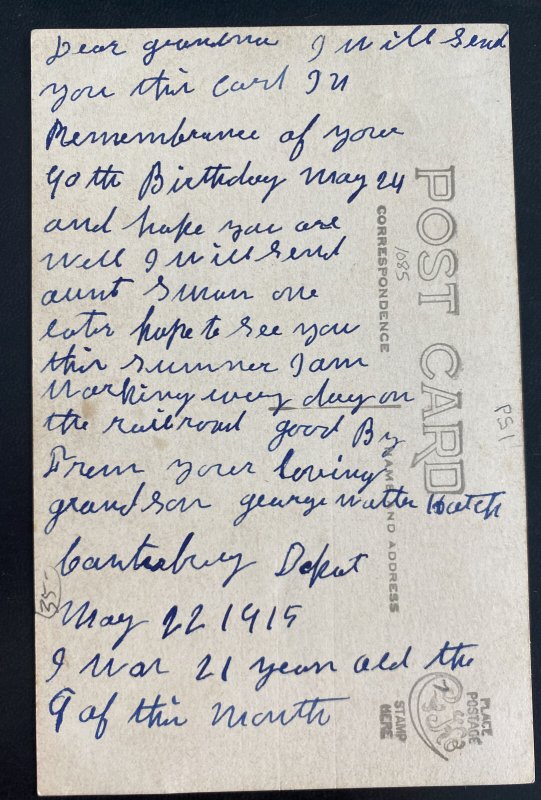 Dear grandma I will send
you this Card In
Rememberance of your
90th Birthday May 24
and hope you are
well I will send
aunt Susan one
later hope to see you
this summer I am
Working every day on
the railroad good By
From your loving
grandson george Walter Hatch
Canterbury Depot
May 22 1915
I was 21 years old the
9 of this month
POST CARD
CORRESPONDENCE
NAME AND ADDRESS
PLACE
POSTAGE
STAMP
HERE
1085
PS1
35-